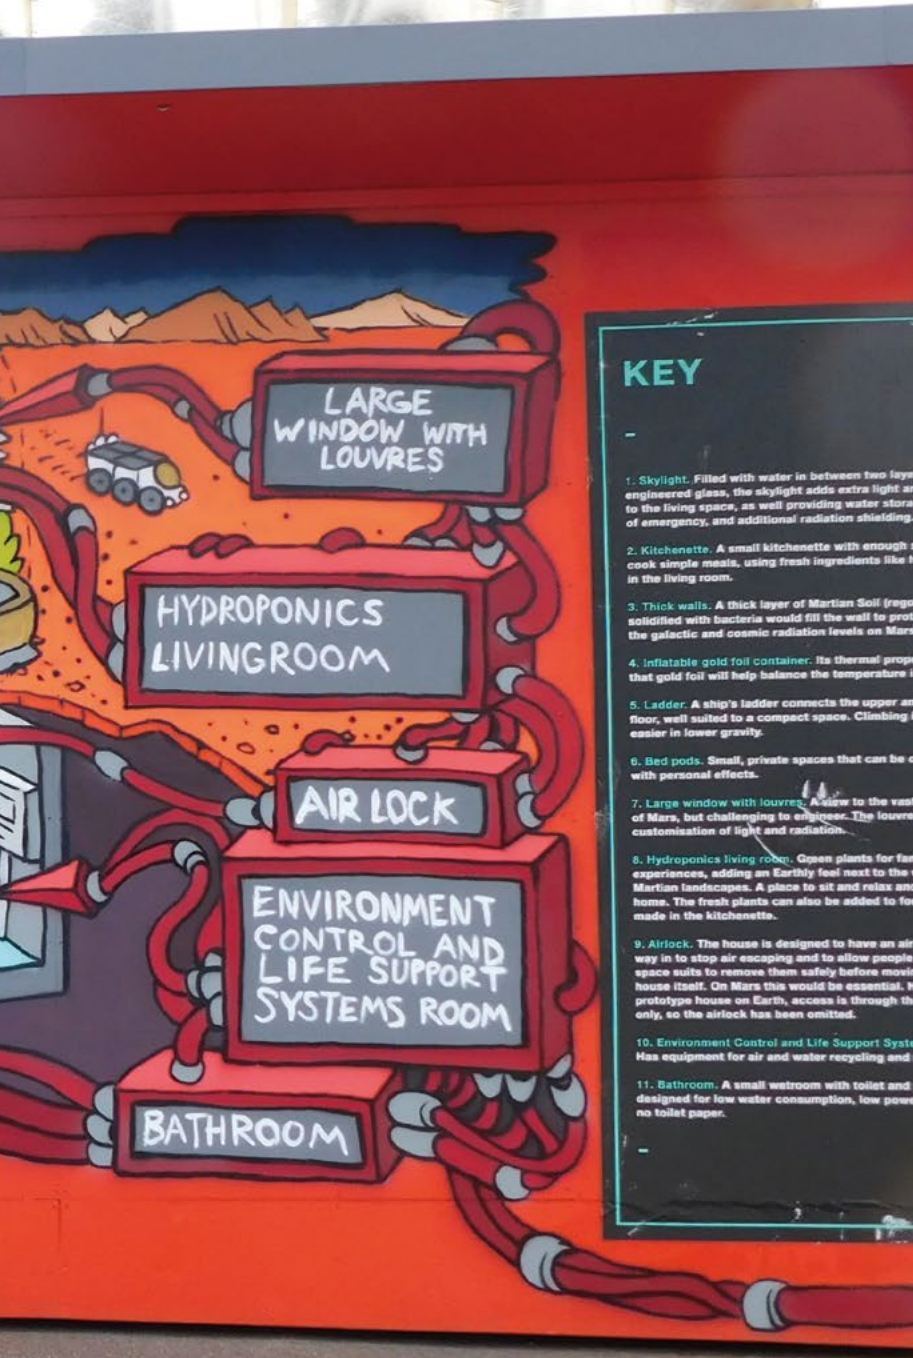 LARGE
WINDOW WITH
LOUVRES
HYDROPONICS
LIVINGROOM
AIR LOCK
ENVIRONMENT
CONTROL AND
LIFE SUPPORT
SYSTEMS ROOM
BATHROOM
KEY
1. Skylight. Filled with water in between two
engineered glass, the skylight adds extra light
to the living space, as well providing water
of emergency, and additional radiation shielding.
2. Kitchenette. A small kitchenette with enough
cook simple meals, using fresh ingredients like
in the living room.
3. Thick walls. A thick layer of Martian Soil
solidified with bacteria would fill the wall to
the galactic and cosmic radiation levels on Mars
4. Inflatable gold foil container. Its thermal
that gold foil will help balance the temperature
5. Ladder. A ship's ladder connects the upper
floor, well suited to a compact space. Climbing
easier in lower gravity.
6. Bed pods. Small, private spaces that can be
with personal effects.
7. Large window with louvres. A view to the
of Mars, but challenging to engineer. The
customisation of light and radiation.
8. Hydroponics living room. Green plants for
experiences, adding an Earthly feel next to the
Martian landscapes. A place to sit and relax
home. The fresh plants can also be added to
made in the kitchenette.
9. Airlock. The house is designed to have an
way in to stop air escaping and to allow people
space suits to remove them safely before
house itself. On Mars this would be essential.
prototype house on Earth, access is through
only, so the airlock has been omitted.
10. Environment Control and Life Support
Has equipment for air and water recycling and
11. Bathroom. A small wetroom with toilet and
designed for low water consumption, low
no toilet paper.